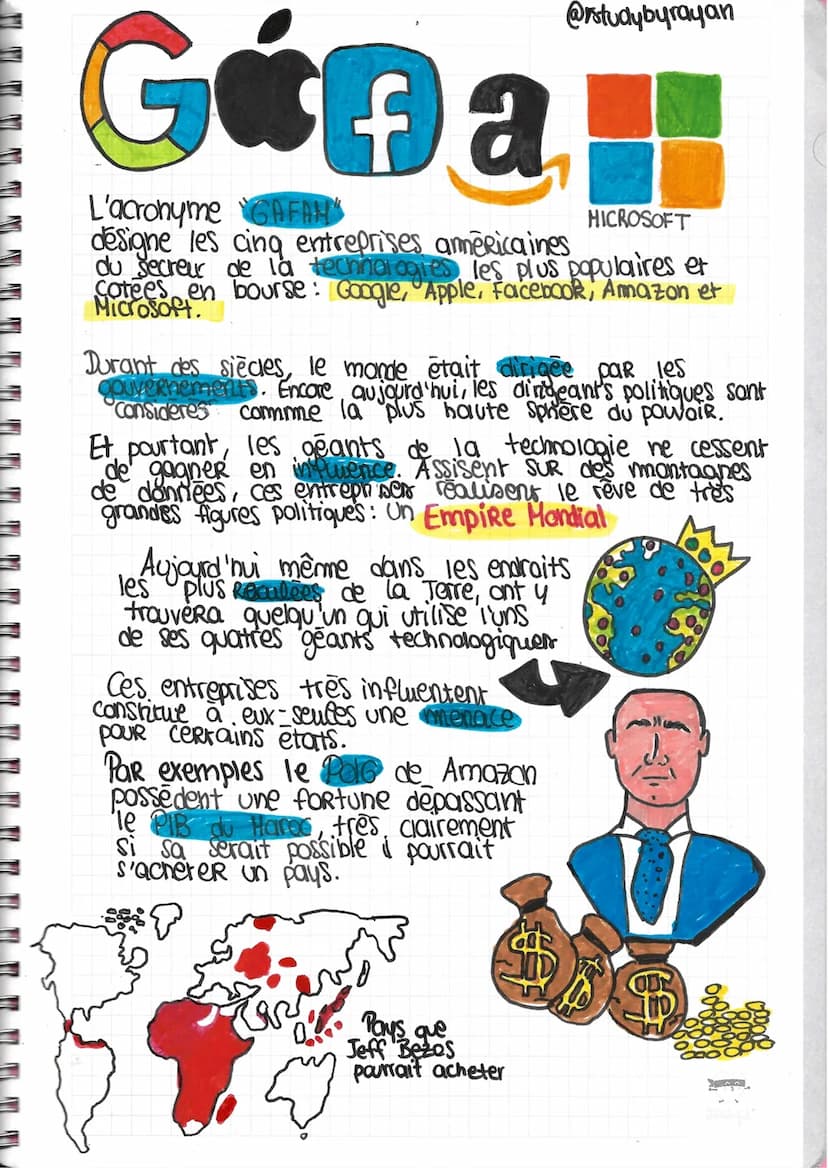 @rstudybyrayan
G a f a
MICROSOFT
L'acronyme "GAFAM"
désigne les cinq entreprises américaines
du secteur de la technologies les plus populaires et
cotées en bourse : Google, Apple, Facebook, Amazon et
Microsoft.
Durant des siècles, le monde était dirigée par les
gouvernements. Encore aujourd'hui, les dirigeants politiques sont
"considérés" comme la plus haute sphère du pouvoir.
Et pourtant, les géants de la technologie ne cessent
de gagner en influence. Assisent sur des montagnes
de données, ces entreprises réalisent le rêve de très
grandes figures politiques : Un Empire Mondial
Aujourd'hui même dans les endroits
les plus reculées de la Terre, ont y
trouvera quelqu'un qui utilise l'uns
de ses quatres géants technologiques
Ces entreprises très influentent
constitue à eux-seules une menace
pour certains états.
Par exemples le PDG de Amazon
possèdent une fortune dépassant
le PIB du Maroc, très clairement
si sa serait possible il pourrait
s'acheter un pays.
Pays que
Jeff Bezos
pourrait acheter